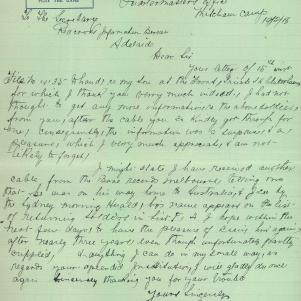 Quartermasters Office
Mitcham Camp
To The Secretary
Records Information Bureau
Adelaide
Dear Sir
Your letter of 15th inst
File No 4135 to hand, re my son at the Front,
for which I thank you very much indeed, I had not
thought to get any more information re the above
from you, after the cable you so kindly got through for
me, consequently the information was a surprise & a
pleasure, which I very much appreciate, & am not
likely to forget,
I might state I have received another
cable from the Base records Melbourne telling me
that he was on his way home to Australia, & I see by
the Sydney Morning Herald, his name appears on the list
of returning soldiers in list & I hope within the
next few days to have the pleasure of seeing him again
after nearly three years even though unfortunately partly
crippled, if anything I can do in my small way, as
regards your splendid Institution, I will gladly do once
again thanking you for your
Yours Sincerely